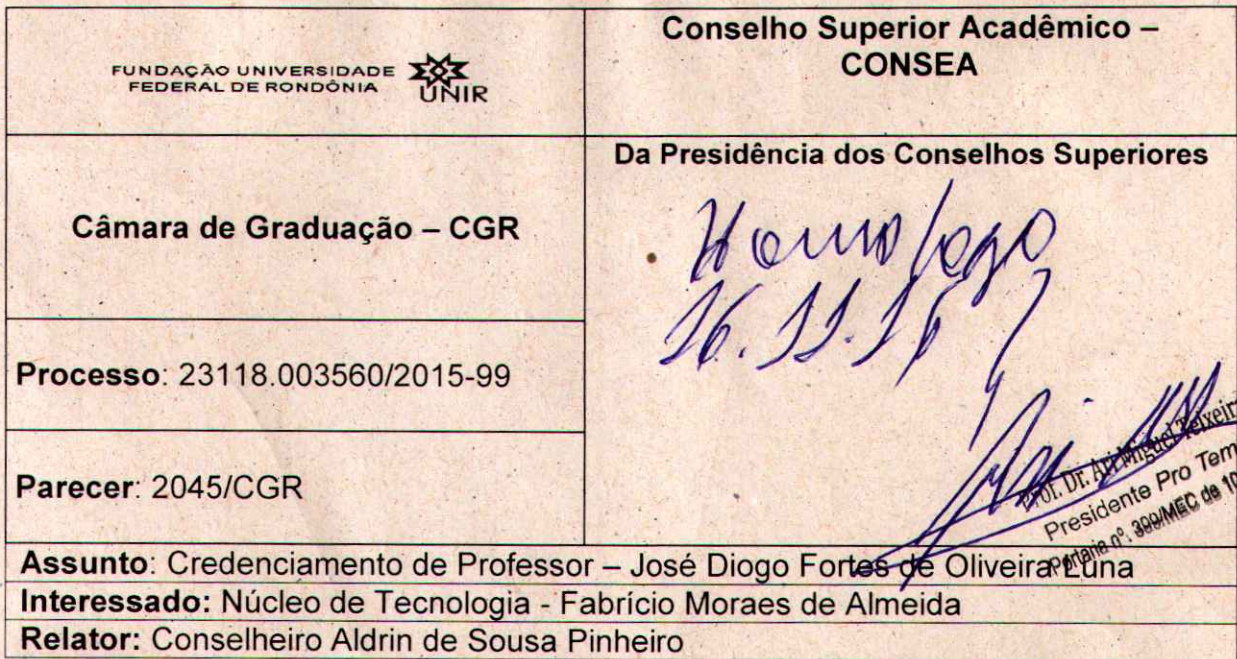 FUNDAÇÃO UNIVERSIDADE
FEDERAL DE RONDÔNIA
UNIR
Conselho Superior Acadêmico –
CONSEA
Câmara de Graduação – CGR
Da Presidência dos Conselhos Superiores
Homologo
16.11.15
Prof. Dr. Ari Miguel Teixeir
Presidente Pro Tem
Portaria nº. 399/MEC de 10
Processo: 23118.003560/2015-99
Parecer: 2045/CGR
Assunto: Credenciamento de Professor – José Diogo Fortes de Oliveira Luna
Interessado: Núcleo de Tecnologia - Fabrício Moraes de Almeida
Relator: Conselheiro Aldrin de Sousa Pinheiro